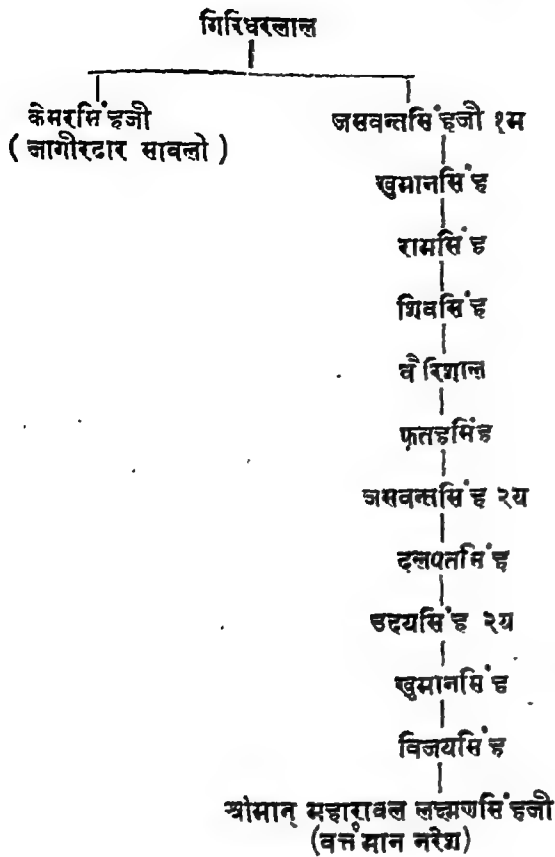 गिरिधरलाल
केसरसिंहजी
( जागीरदार सावलो )
जसवन्तसिंहजी १म
खुमानसिंह
रामसिंह
शिवसिंह
वैरिशाल
फ़तहसिंह
जसवन्तसिंह २य
दलपतसिंह
उदयसिंह २य
खुमानसिंह
विजयसिंह
श्रीमान् महारावल लक्ष्मणसिंहजी
(वर्त्तमान नरेश)